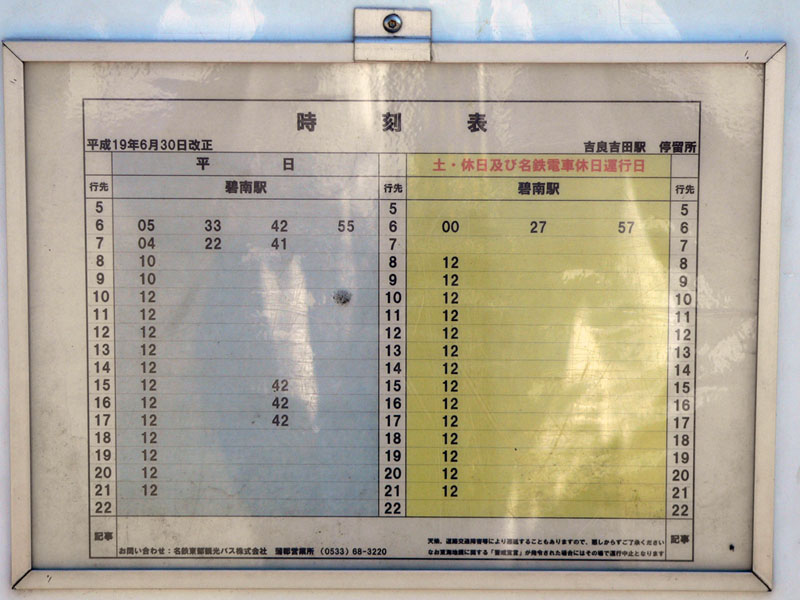 時刻表
平成19年6月30日改正 吉良吉田駅 停留所
平日 土・休日及び名鉄電車休日運行日
行先 碧南駅 行先 碧南駅 行先
5 5 5
6 05 33 42 55 6 00 27 57 6
7 04 22 41 7 7
8 10 8 12 8
9 10 9 12 9
10 12 10 12 10
11 12 11 12 11
12 12 12 12 12
13 12 13 12 13
14 12 14 12 14
15 12 42 15 12 15
16 12 42 16 12 16
17 12 42 17 12 17
18 12 18 12 18
19 12 19 12 19
20 12 20 12 20
21 12 21 12 21
22 22 22
記事 お問い合わせ：名鉄東部観光バス株式会社 蒲郡営業所 (0533) 68-3220 記事
天候、道路交通障害等により遅延することもありますので、悪しからずご了承ください
なお東海地震に関する「警戒宣言」が発令された場合にはその場で運行中止となります